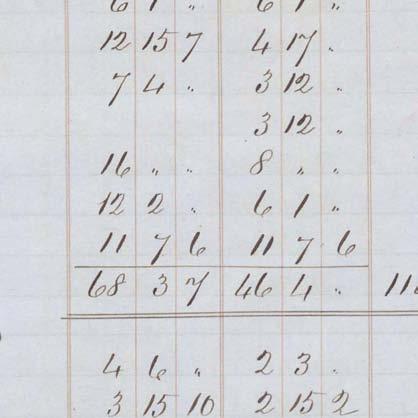 6 1 〃 6 1 〃
12 15 7 4 17 〃
7 4 〃 3 12 〃
3 12 〃
16 〃 〃 8 〃 〃
12 2 〃 6 1 〃
11 7 6 11 7 6
68 3 7 46 4 〃
4 6 〃 2 3 〃
3 15 10 2 15 2